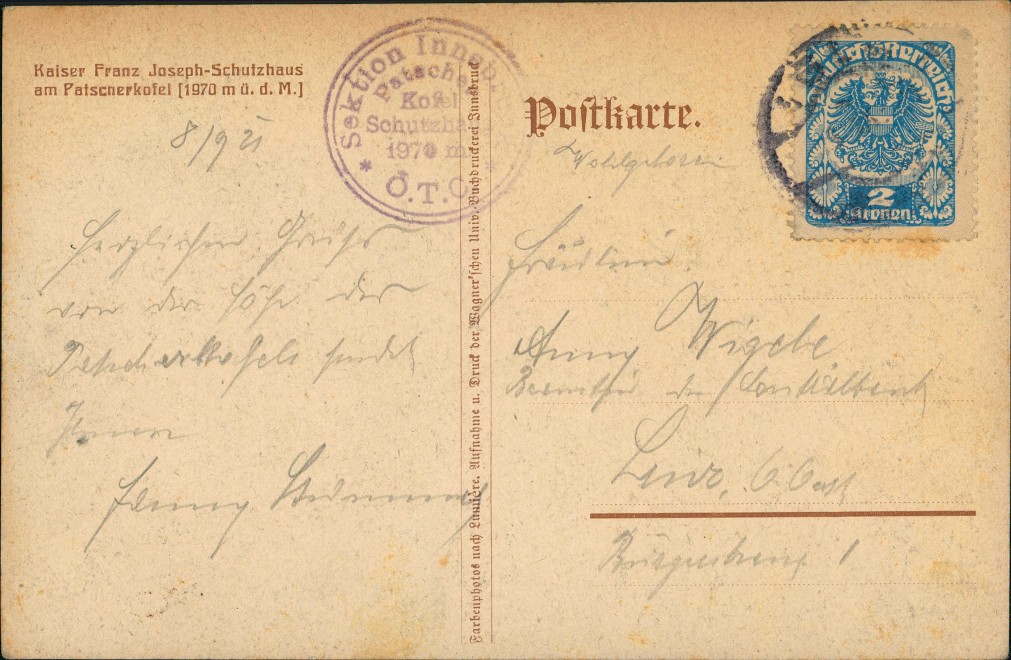 Kaiser Franz Joseph-Schutzhaus
am Patscherkofel [1970 m ü. d. M.]
8/9 21
Sektion Innsb
Patscher
Kofel
Schutzha
1970 m
* Ö.T.C. *
Herzlichen Gruß
von der Höhe des
Patscherkofels sendet
Ihnen
Fanny
Farbenphotos nach Lumière. Aufnahme u. Druck der Wagner'schen Univ.-Buchdruckerei Innsbruck
Postkarte.
Deutschösterreich
2
Kronen
Wohlgeboren
Fräulein
Anny Wigele
Beamtin der Centralbank
Linz, O.Öst
1